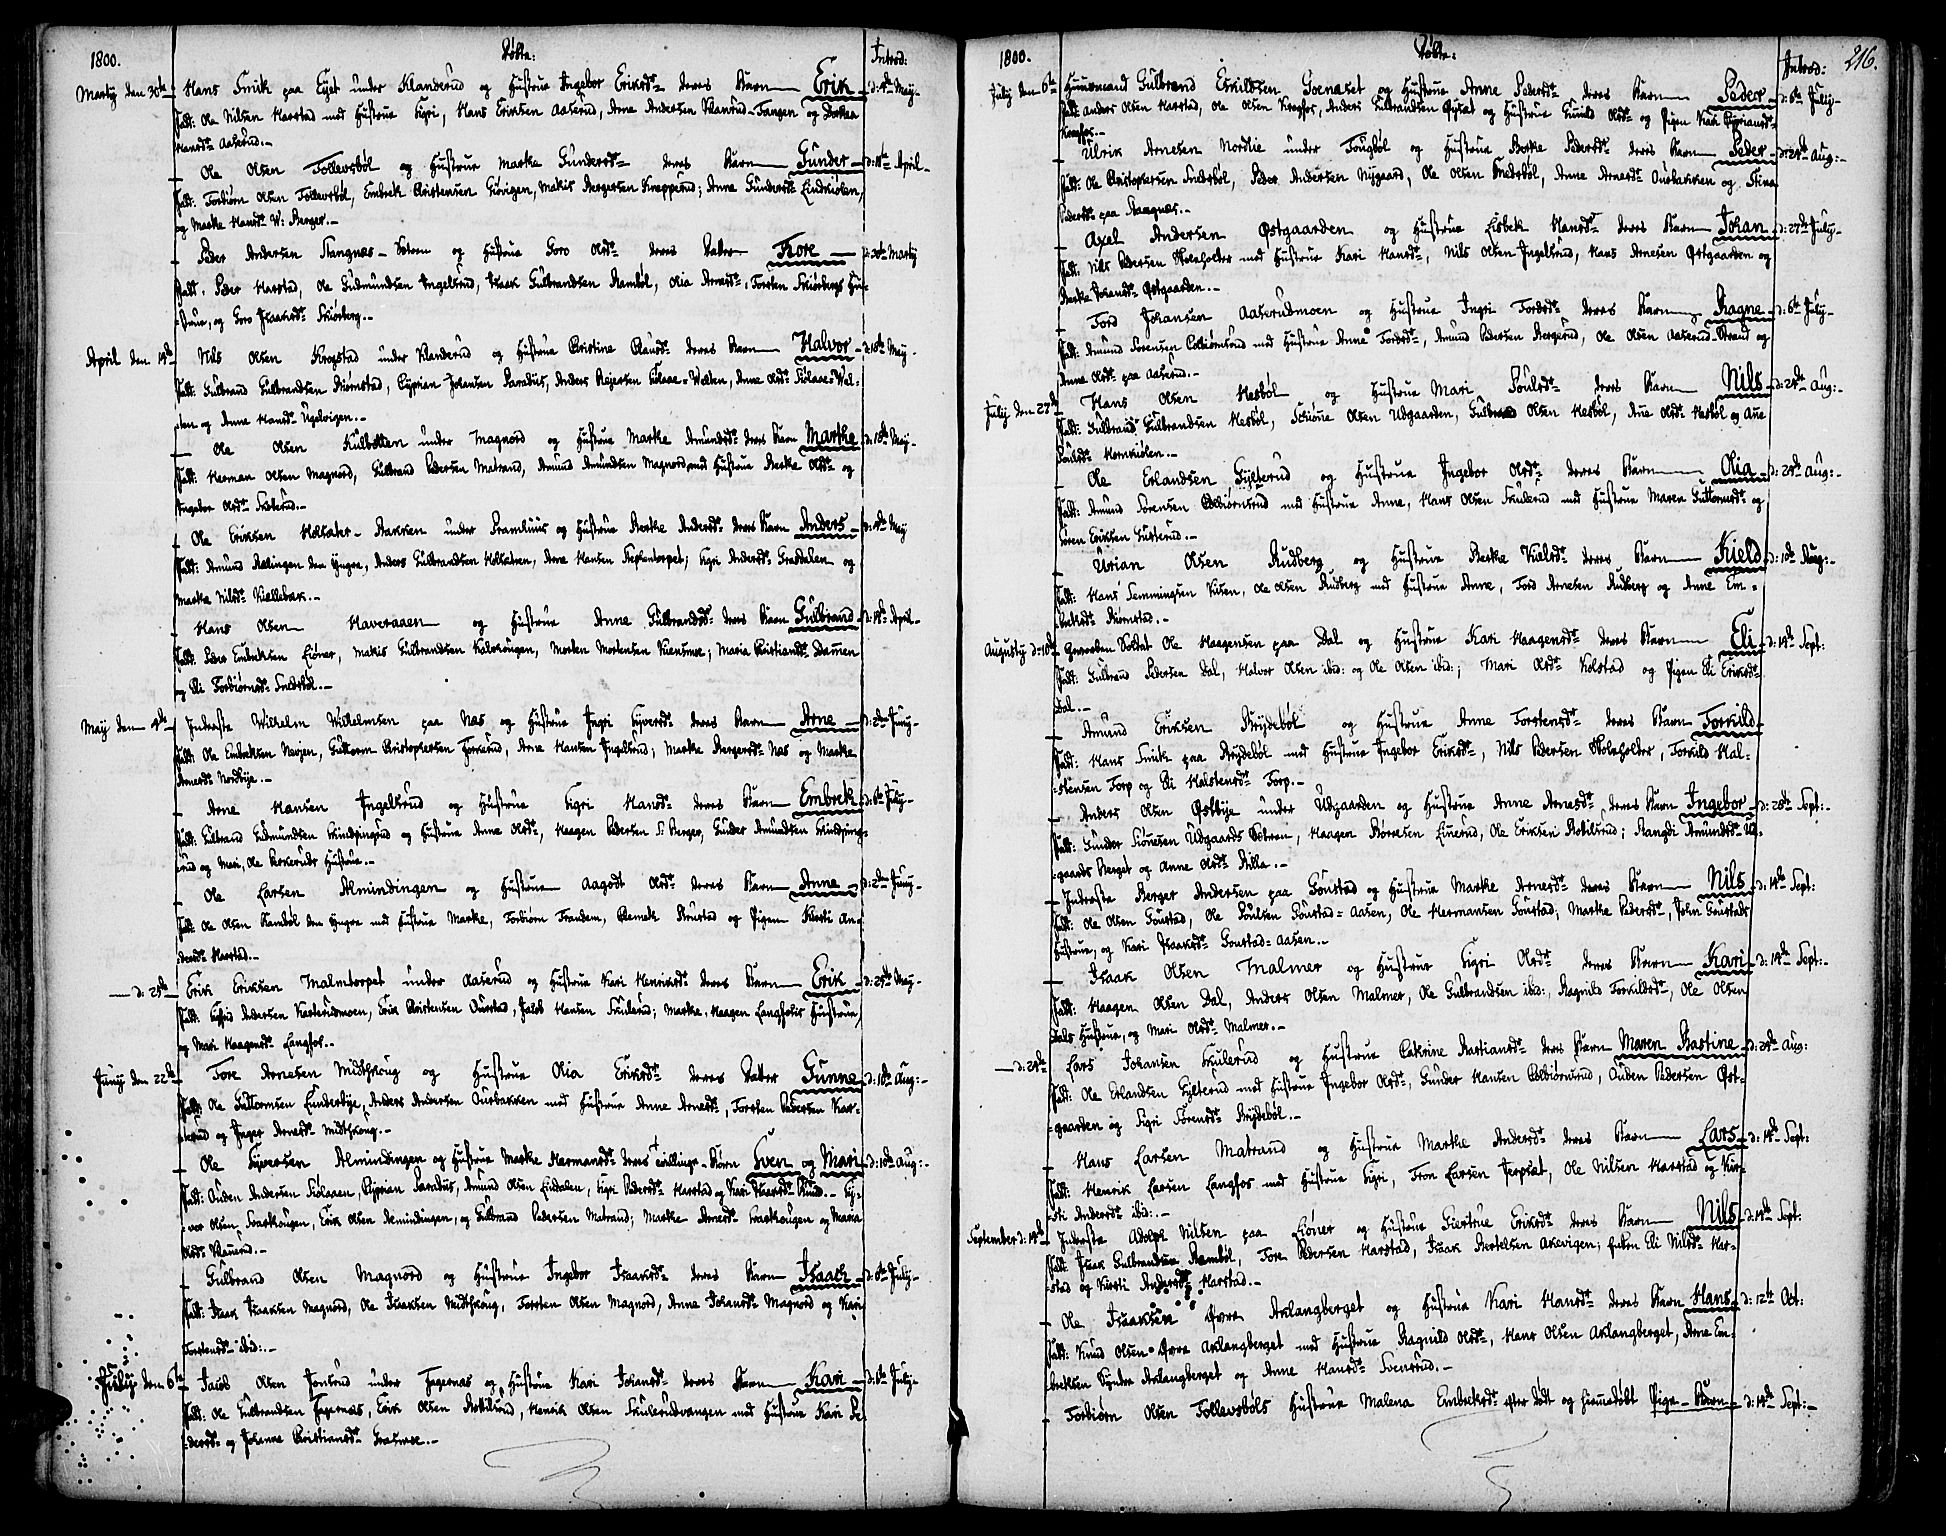 1800.
Døbte:
Introd:
Martÿ den 30te Hans Smik paa Eyet under Klanderud og Hustrue Ingebor Eriksdr deres Barn Erik d: 4de May
Fadd: Ole Nilsen Harstad med Hustrue Sigri, Hans Eriksen Aaserud, Arne Andersen Klanrud-Tangen og Dorthea
Hansdr Aaserud.
Ole Olsen Tollevsbøl og Hustrue Marthe Gundersdr deres Barn Gunder d: April
Fadd: Torbiørn Olsen Tollevsbøl, Embrek Christensen, Mathis Bergersen Kropperud; Anne Gundersdr Lindkiølen,
og Marthe Hansdr W: Berger.
Peder Andersen Stangnæs og Hustrue Goro Olsdr deres Datter Thore d: 30te Martÿ
Fadd. Peder Harstad, Ole Gudmundsen Ingelsrud, Isaak Gulbrandsen Rambøl, Olia Arnesdr, Torsten Skiørbergs Hu-
strue, og Goro Isaaksdr Skiørberg.
April den 14de Nils Olsen Krogstad under Klanderud og Hustrue Christine Olausdr deres Barn Halvor d: May
Fadd: Gulbrand Gulbrandsen Biørnstad, Cyprian Johansen Paradiis, Anders Reiersen Siølaae-Wolten, Anne Olsdr Siølaae-Wol-
ten og Anne Hansdr Ugelvigen.
Ole Olsen Kulbotten under Magnord og Hustrue Marthe Amundsdr deres Barn Marthe d: 18de May
Fadd: Herman Olsen Magnord, Gulbrand Pedersen Matrand, Amund Amundsen Magnord med Hustrue Berthe Olsdr og
Ingebor Olsdr
Ole Eriksen Holtsater-Bakken under og Hustrue Berthe Andersdr deres Barn Anders d: May
Fadd: Amund den yngre, Anders Gulbrandsen Holtsatren, Arne Hansen; Sigri Andersdr Grasdalen og
Marthe Nilsdr Kiællebæk.
Hans Olsen Haveraaen og Hustrue Anne Gulbrandsdr deres Barn Gulbrand d: 14de April
Fadd: Peder Embreksen Liøner, Mathis Gulbrandsen Kalvhougen, Morten Mortensen; Maria Christiansdr Dammen
og Eli Torbiørnsdr
May den 4de Inderste Wilhelm Wilhelmsen paa Næs og Hustrue Ingri Syversdr deres Barn Arne d: Juny
Fadd: Ole Embreksen, Guttorm Christophersen, Arne Hansen Ingelsrud; Marthe Bergersdr Næs og Marthe
Arnesdr Nordbye.
Arne Hansen Ingelsrud og Hustrue Sigri Hansdr deres Barn Embrek d: 6te July
Fadd: Gulbrand Gudmundsen og Hustrue Anne Olsdr, Haagen Pedersen S: Berger, Gunder Amundsen
og Mari, Ole Hustrue.
Ole Larsen Almindingen og Hustrue Aagodt Olsdr deres Barn Anne d: Juny
Fadd: Ole Olsen Rambøl den yngre med Hustrue Marthe, Torbiørn Trandem, og Pigen Kirsti An-
dersdr Harstad.
d: 25de Erik Eriksen Malmtorpet under Aaserud og Hustrue Kari Henriksdr deres Barn Erik d: 29de May
Fadd: Andersen, Erik Christensen, Jacob Hansen Skulerud; Marthe, Haagen Langfosis Hustrue,
og Mari Haagensdr Langfos.
Juny den 22de Tore Arnesen Midthoug og Hustrue Olia Eriksdr deres Datter Gunne d: 10de Aug:
Fadd: Ole Guttormsen Lunderbye, Anders Andersen Ourbakken med Hustrue Anne Arnesdr, Torsten Pedersen
og Inger Arnesdr Midthoug.
Ole Syversen Almindingen og Hustrue Marthe Hermansdr deres tvillinge-Børn Sven og Mari d: 10de Aug:
Fadd: Ouden Andersen Siølaaen, Cyprian Paradiis, Amund Olsen Lindalen, Sigri Pedersdr Harstad og Kari Isaaksdr. Sy-
ver Olsen, Erik Olsen Almindingen, og Gulbrand Pedersen Matrand; Marthe Arnesdr og Maria
Olsdr
Gulbrand Olsen Magnord og Hustrue Ingebor Isaaksdr deres Barn Isaach d: 6te July
Fadd: Isaak Isaaksen Magnord, Ole Isaaksen Midthoug, Torsten Olsen Magnord, Anne Johansdr Magnord og Kari
Torstensdr ibid:.
July den 6te Jacob Olsen under Jagernæs og Hustrue Kari Johansdr deres Barn Kari d: 6te July
Fadd: Ole Gulbrandsen Jagernæs, Erik Olsen, Henrik Olsen Skulerudvangen med Hustrue Kari Pe-
dersdr og Johanne Christiansdr
1800.
Døbte:
Introd:
216.
July den 6te Huusmand Gulbrand Eskildsen og Hustrue Anne Pedersdr deres Barn Peder d: 6te July
Fadd: Anders Olsen Harstad, Ole Olsen Krogfos, Anders Gulbrandsen og Hustrue Gunild Olsdr og Pigen Kari Cypriansdr
Krogfos.
Ulrik Arnesen Nordlie under Tougbøl og Hustrue Berthe Pedersdr deres Barn Peder d: 24de Aug:
Fadd: Ole Christophersen, Peder Andersen Nygaard, Ole Olsen, Anne Arnesdr Ourbakken og Stina
Pedersdr paa
Axel Andersen Østgaarden og Hustrue Lisbeth Hansdr deres Barn Johan d: 27de July
Fadd: Nils Pedersen Skolholter med Hustrue Kari Hansdr, Nils Olsen Ingelsrud, Hans Arnesen Østgaarden og
Berthe Johansdr Østgaarden.
Tord Johansen Aaserudmoen og Hustrue Ingri Tordsdr deres Barn Ragne d: 6te July
Fadd: Amund Sørensen Esbiørnsrud med Hustrue Anne Tordsdr, Amund Pedersen Bergerud, Ole Olsen Aaserud-Strand og
Anne Olsdr paa Aaserud.
July den 27de Hans Olsen Hesbøl og Hustrue Mari Poulsdr deres Barn Nils d: 24de Aug:
Fadd: Gulbrand Gulbrandsen Hesbøl, Simon Olsen Udgaarden, Gulbrand Olsen Hesbøl, Ane Olsdr Hesbøl og Ane
Poulsdr Hornkiølen.
Ole Erlandsen Gylterud og Hustrue Ingebor Olsdr deres Barn Olia d: 24de Aug:
Fadd: Amund Sørensen Esbiørnsrud med Hustrue Anne, Hans Olsen Skulerud med Hustrue Maren Guttormsdr og
Søren Eriksen
Urian Olsen Rudberg og Hustrue Berthe Kieldsdr deres Barn Kield d: 10de Aug:
Fadd: Hans Semmingsen, Ole Olsen Rudberg med Hustrue Anne, Tord Arnesen Rudberg og Anne Em-
breksdr Biørnstad.
Augusty d: 10de Soldat Ole Haagensen paa Dal og Hustrue Kari Haagensdr deres Barn Eli d: 14de Sept:
Fadd: Gulbrand Pedersen Dal, Halvor Olsen ibid: og Ole Olsen ibid:; Mari Olsdr Kolstad og Pigen Eli Eriksdr
Dal.
Amund Eriksen Brydebøl og Hustrue Anne Torstensdr deres Barn Torkild
Fadd: Hans Smik paa Brydebøl med Hustrue Ingebor Eriksdr, Nils Pedersen Skolholter, Torkild Hal-
stensen Torp og Eli Halstensdr Torp.
Anders Olsen Østbye under Udgaarden og Hustrue Anne Arnesdr deres Barn Ingebor d: 28de Sept:
Fadd: Gunder Simensen Udgaards, Haagen Børresen, Ole Eriksen; Rangdi Amundsdr Ud-
gaards Berget og Anne Olsdr
Inderste Berger Andersen paa Goustad og Hustrue Marthe Arnesdr deres Barn Nils d: 14de Sept:
Fadd: Ole Olsen Goustad, Ole Poulsen Goustad-Aasen, Ole Hermansen Goustad; Marthe Pedersdr, John Goustads
Hustrue, og Kari Isaaksdr Goustad-Aasen.
Isaak Olsen Malmer og Hustrue Sigri Olsdr deres Barn Kari d: 14de Sept:
Fadd: Haagen Olsen Dal, Anders Olsen Malmer, Ole Gulbrandsen ibid:, Ragnild Torkildsdr, Ole Olsen
Dals Hustrue, og Mari Olsdr Malmer.
d: 24de Lars Johansen Skulerud og Hustrue Cathrine Bastiansdr deres Barn Maren Bastine d: 24de Aug:
Fadd: Ole Erlandsen Gylterud med Hustrue Ingebor Olsdr, Gunder Hansen Esbiørnsrud, Ouden Pedersen Øst-
gaarden og Sigri Sørensdr Brydebøl.
Hans Larsen Matrand og Hustrue Marthe Andersdr deres Barn Lars d: 14de Sept:
Fadd: Henrik Larsen Langfos med Hustrue Sigri, Tron Larsen Jerpset, Ole Nilsen Harstad og Kir-
sti Andersdr ibid:.
September d: 14de Inderste Adolph Nilsen paa Liøner og Hustrue Giertrue Eriksdr deres Barn Nils d: 14de Sept:
Fadd: Isaak Gulbrandsen Rambøl, Tore Pedersen Harstad, Isaak Bertelsen Akevigen; Enken Eli Nilsdr Har-
stad og Kirsti Andersdr Harstad.
Ole Isaaksen Øvre Aklangberget og Hustrue Kari Hansdr deres Barn Hans d: 12te Oct:
Fadd: Knud Olsen Øvre Aklangberget med Hustrue Ragnild Olsdr, Hans Olsen Aklangberget, Arne Em-
breksen Syndre Aklangberget og Anne Hansdr Svensrud.
Torbiørn Olsen Tollevsbøls Hustrue Malena Embreksdr efter Dødt og hiemmedøbt Pige-Barn d: 14de Sept: